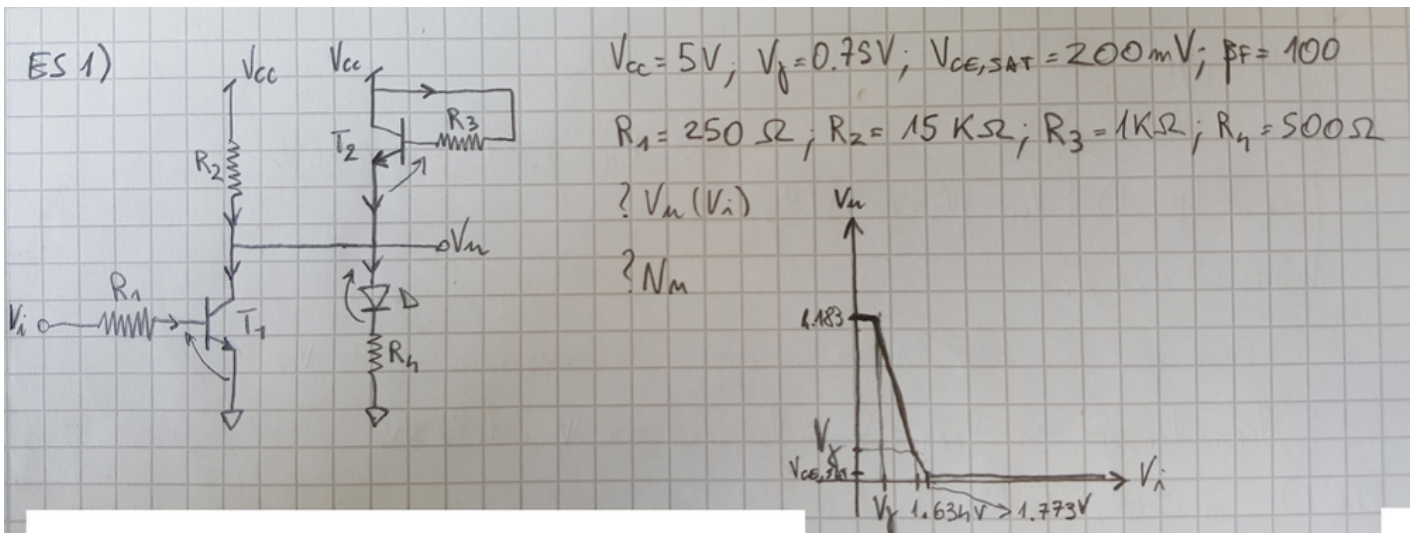 ES 1)
Vcc
Vcc
R2
T2
R3
Vu
Vi
R1
T1
D
R4
Vcc = 5V; Vγ = 0.75V; VCE,SAT = 200mV; βF = 100
R1 = 250 Ω; R2 = 15 KΩ; R3 = 1KΩ; R4 = 500Ω
? Vu (Vi)
? Nm
Vu
4.183
Vγ
VCE,SAT
Vγ 1.634V > 1.773V
Vi